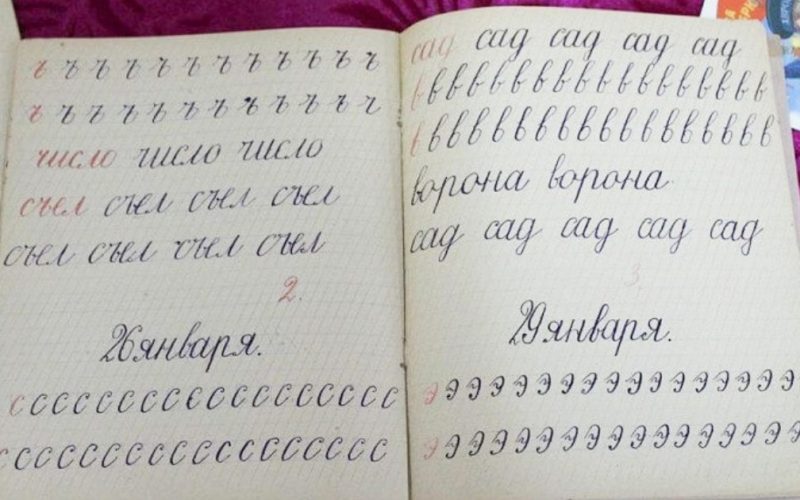 ъ ъ ъ ъ ъ ъ ъ ъ ъ ъ ъ ъ
ъ ъ ъ ъ ъ ъ ъ ъ ъ ъ ъ ч
число число число
съел съел съел съел
съел съел съел съел
2.
26 января.
с с с с с с с с с с с с с с с с с с
с с с с с с с с с с с с с с с с с с
сад сад сад сад сад
в в в в в в в в в в в в в в в в в в
в в в в в в в в в в в в в в в в в в
ворона ворона
сад сад сад сад сад
3.
29 января.
э э э э э э э э э э э э э э э э э
э э э э э э э э э э э э э э э э э